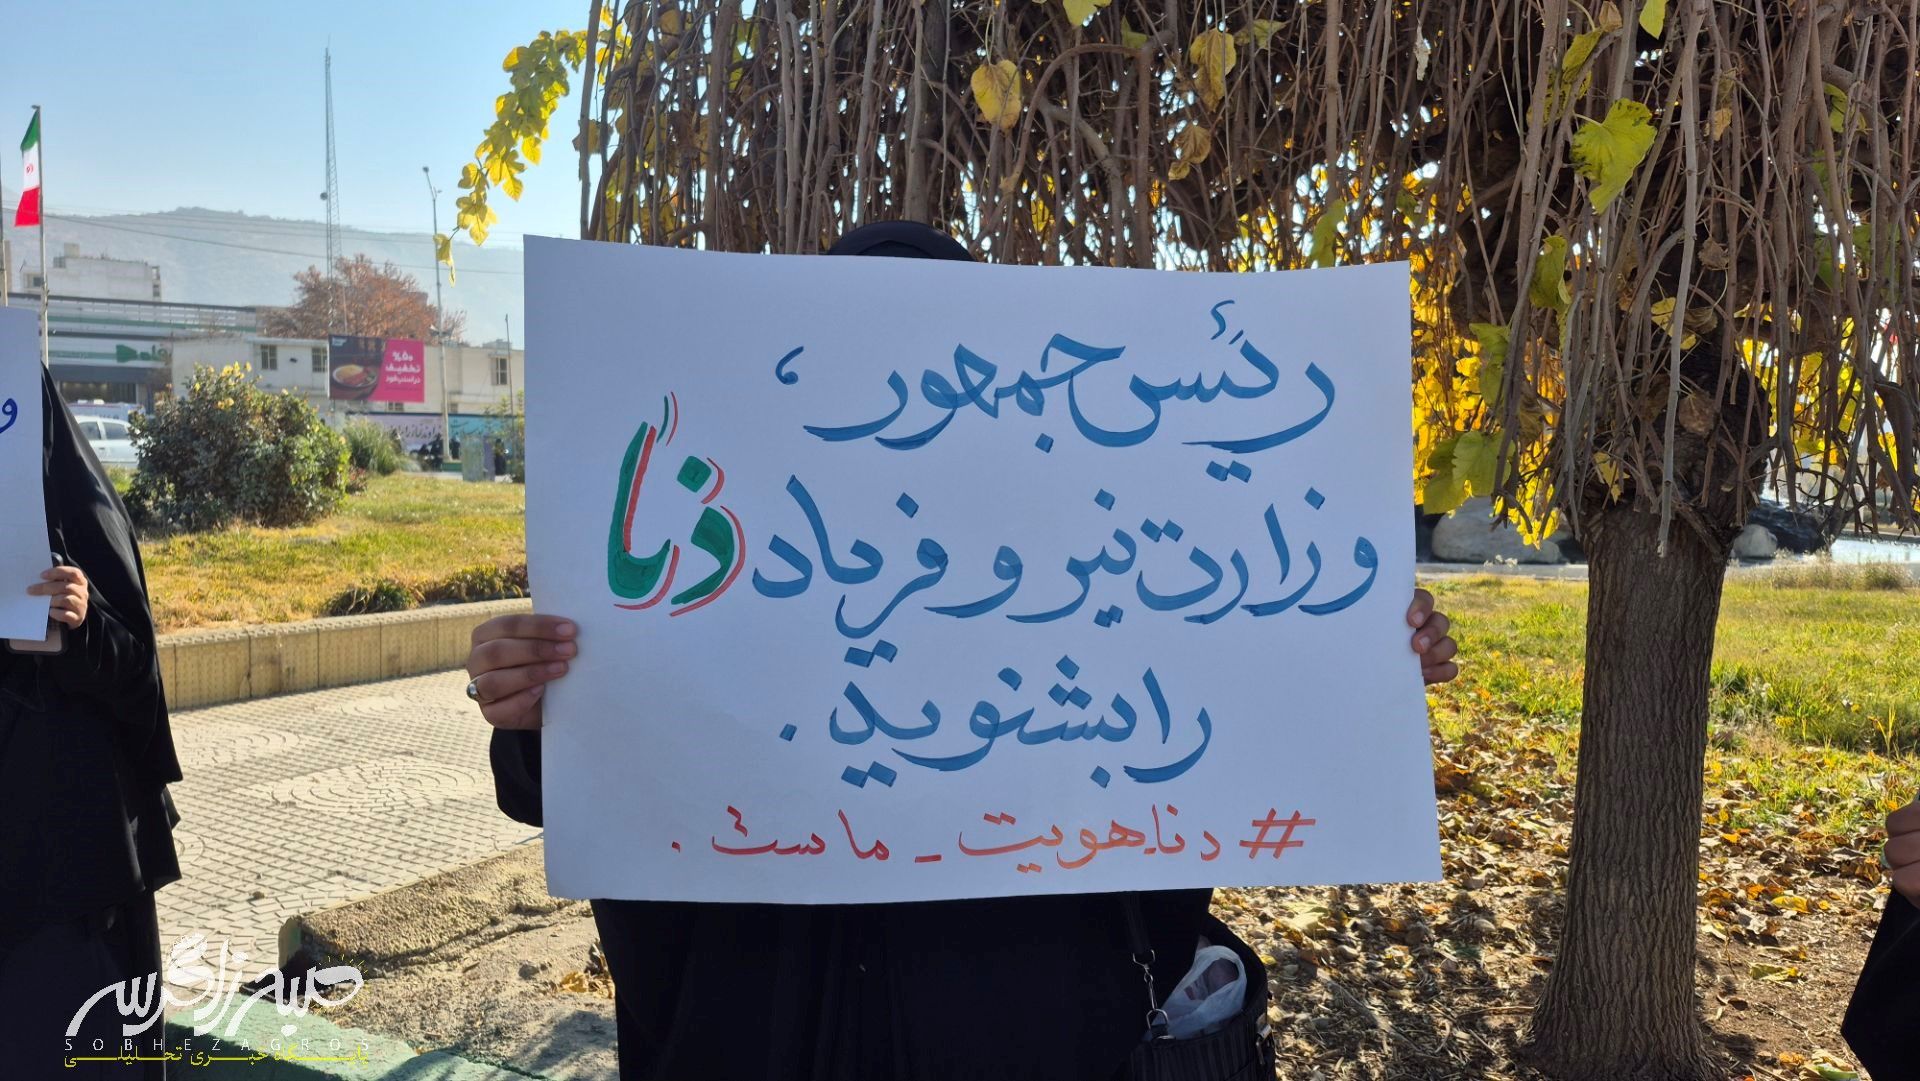 رئیس جمهور،
وزارت نیرو فریاد دنا
را بشنوید.
#دنا_هویت_ماست.
%۵۰
تخفیف
صبح زاگرس
SOBHEZAGROS
پایگاه خبری تحلیلی